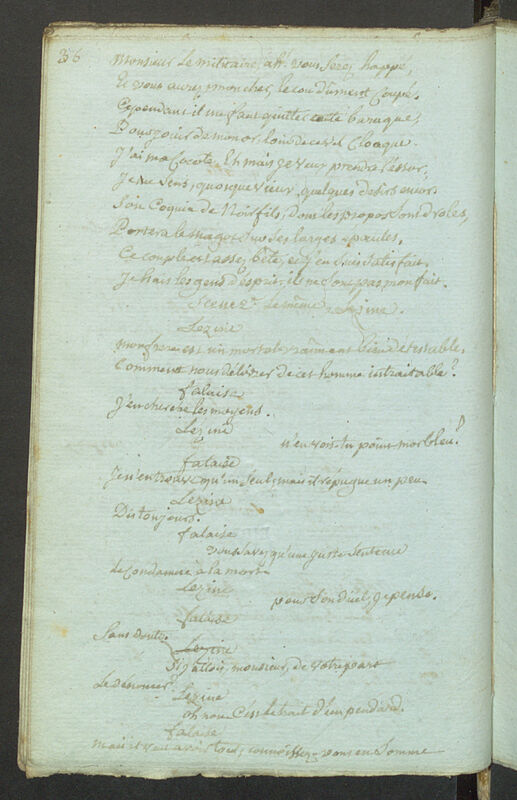 36
Monsieur le militaire, ah! vous serez happé,
Et vous aurez, mon cher, le cou dument coupé.
Cependant il me faut quitter cette baraque,
Pour jouir de mon or, loin de ce vil cloaque.
J'ai ma Cocote. Eh mais je veux prendre l'essor;
Je me sens, quoique vieux, quelques desirs encor.
Son Coquin de Noirfils, dont les propos sont droles,
Portera le magot sur ses larges épaules.
Ce couple est assez bête, et j'en suis satisfait.
Je hais les gens d'esprit, ils ne sont pas mon fait.
Scene 2e. Le même, Lezine.
Lezine
mon frere est un mortel vraîment bien detestable.
Comment nous délivrer de cet homme intraitable?
falaise
J'en cherche les moyens.
Lezine
n'en vois-tu point morbleu?
falaise
Je n'en trouve qu'un seul; mais il répugne un peu
Lezine
Dis toujours.
falaise
vous savez qu'une juste sentence
Le condamne à la mort.
Lezine
pour son duel je pense.
falaise
Sans doute.
Lezine
Si j'allois, monsieur, de votre part
Le dénoncer?
Lezine
oh non: C'est le trait d'un pendard.
falaise
mais il veut avoir tout; connoissez-vous en somme